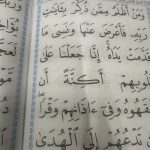 وَمَنْ أَظْلَمُ مِمَّن ذُكِّرَ بِـَٔايَٰتِ
رَبِّهِۦ فَأَعْرَضَ عَنْهَا وَنَسِيَ مَا
قَدَّمَتْ يَدَاهُ إِنَّا جَعَلْنَا عَلَىٰ
قُلُوبِهِمْ أَكِنَّةً أَن
يَفْقَهُوهُ وَفِىٓ ءَاذَانِهِمْ وَقْرًا
تَدْعُهُمْ إِلَى ٱلْهُدَىٰ